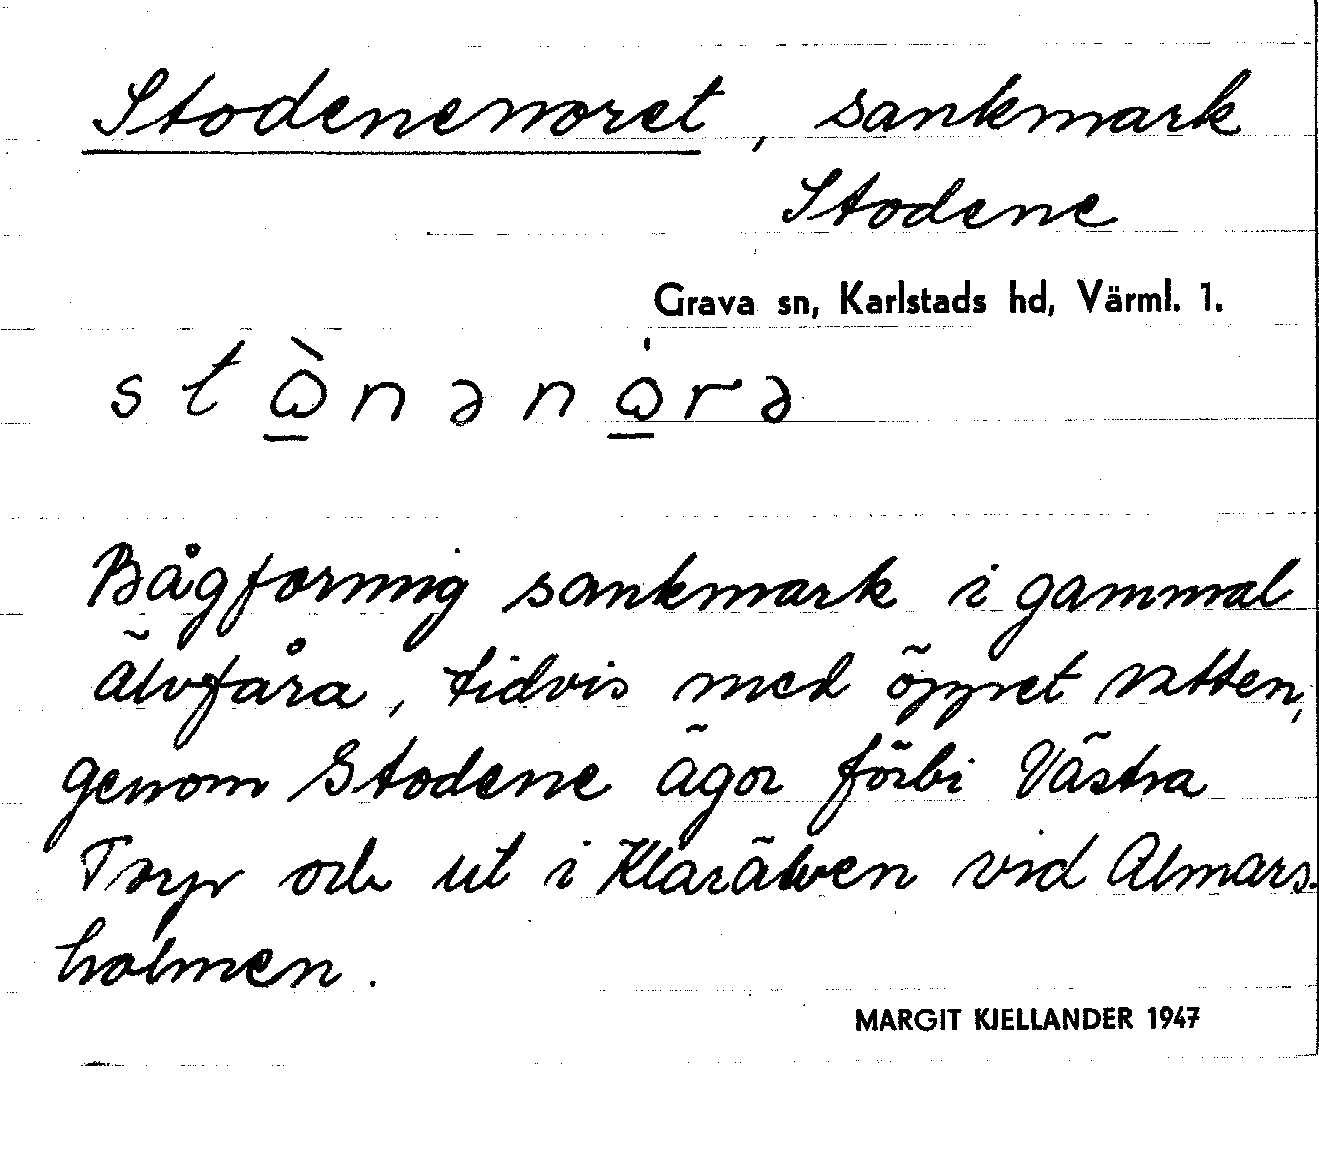 Stodenenoret, sankmark
Stodene
Grava sn, Karlstads hd, Värml. 1.
Bågformig sankmark i gammal
älvfåra, tidvis med öppet vatten,
genom Stodene ägor förbi Västra
och ut i Klarälven vid Almars-
holmen.
MARGIT KJELLANDER 1947